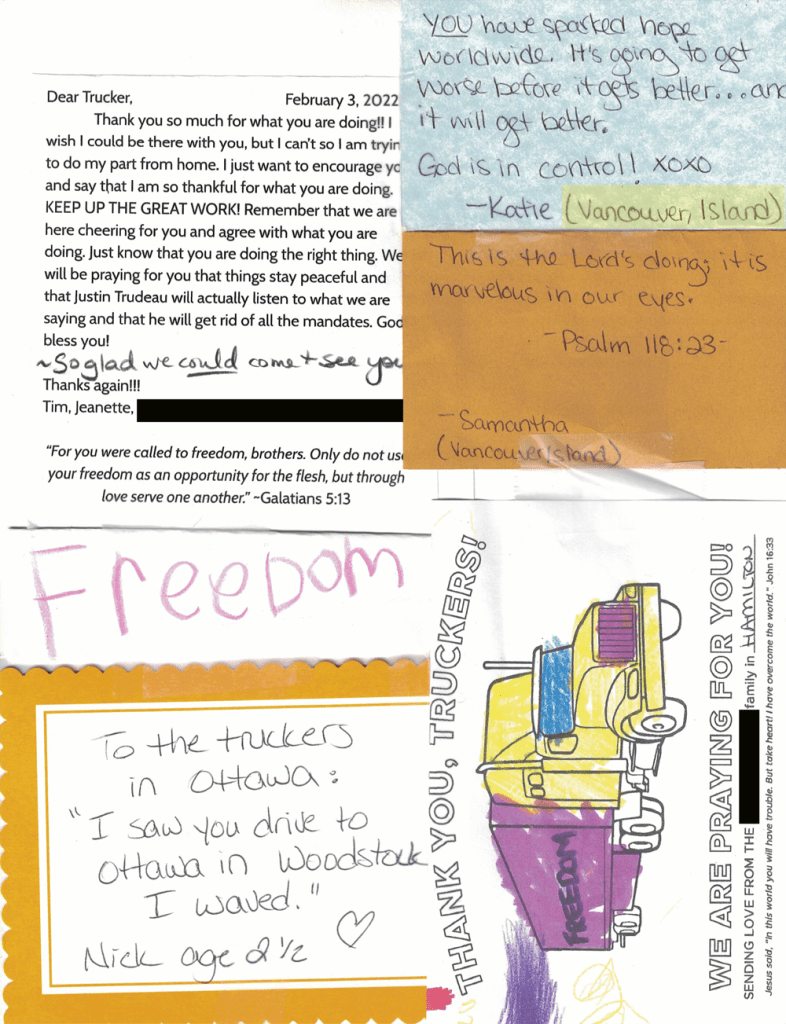 Dear Trucker,
February 3, 2022
Thank you so much for what you are doing!! I
wish I could be there with you, but I can't so I am tryin
to do my part from home. I just want to encourage yo
and say that I am so thankful for what you are doing.
KEEP UP THE GREAT WORK! Remember that we are
here cheering for you and agree with what you are
doing. Just know that you are doing the right thing. We
will be praying for you that things stay peaceful and
that Justin Trudeau will actually listen to what we are
saying and that he will get rid of all the mandates. God
bless you!
~So glad we could come + see you
Thanks again!!!
Tim, Jeanette,
"For you were called to freedom, brothers. Only do not use
your freedom as an opportunity for the flesh, but through
love serve one another." ~Galatians 5:13
YOU have sparked hope
worldwide. It's going to get
worse before it gets better...and
it will get better.
God is in control! xoxo
-Katie (Vancouver, Island)
This is the Lord's doing; it is
marvelous in our eyes.
-Psalm 118:23-
-Samantha
(Vancouver Island)
FreeDom
To the truckers
in Ottawa:
"I saw you drive to
Ottawa in Woodstock
I waved."
Nick age 2 1/2
THANK YOU, TRUCKERS!
FREEDOM
WE ARE PRAYING FOR YOU!
SENDING LOVE FROM THE family in HAMILTON
Jesus said, "In this world you will have trouble. But take heart! I have overcome the world." John 16:33